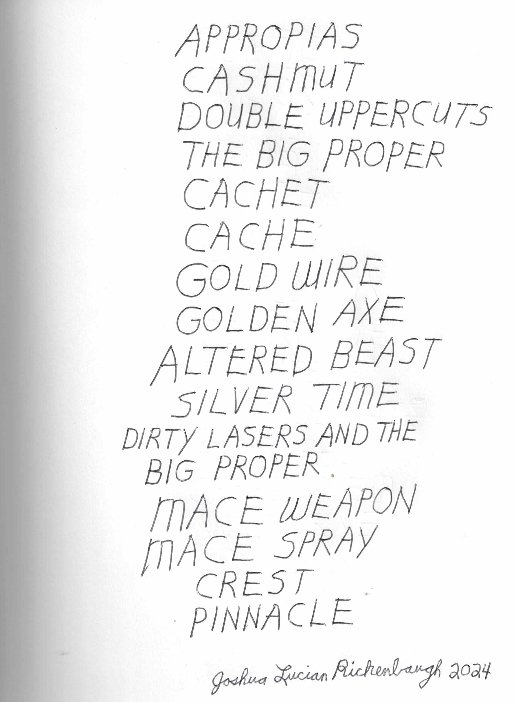 APPROPIAS
CASHMUT
DOUBLE UPPERCUTS
THE BIG PROPER
CACHET
CACHE
GOLD WIRE
GOLDEN AXE
ALTERED BEAST
SILVER TIME
DIRTY LASERS AND THE
BIG PROPER
MACE WEAPON
MACE SPRAY
CREST
PINNACLE
Joshua Lucian Rickenbaugh 2024